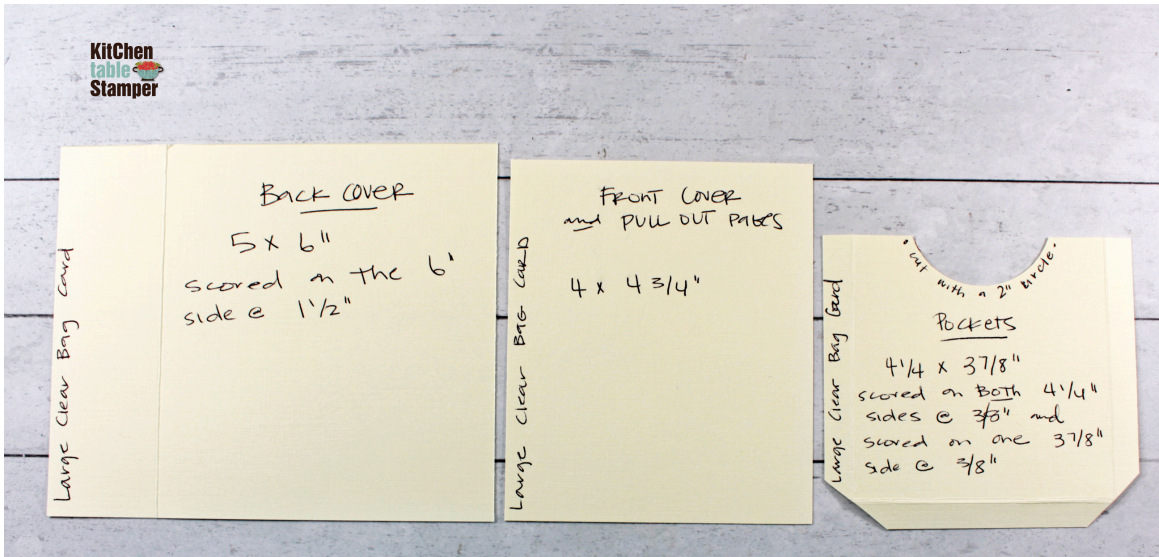 KitChen
table
Stamper
Large Clear Bag Card
Back Cover
5 x 6"
scored on the 6"
side @ 1 1/2"
Large Clear Bag Card
Front Cover
and Pull Out Pages
4 x 4 3/4"
Large Clear Bag Card
• cut with a 2" circle •
Pockets
4 1/4 x 3 7/8"
scored on Both 4 1/4"
sides @ 3/8" and
scored on one 3 7/8"
side @ 3/8"